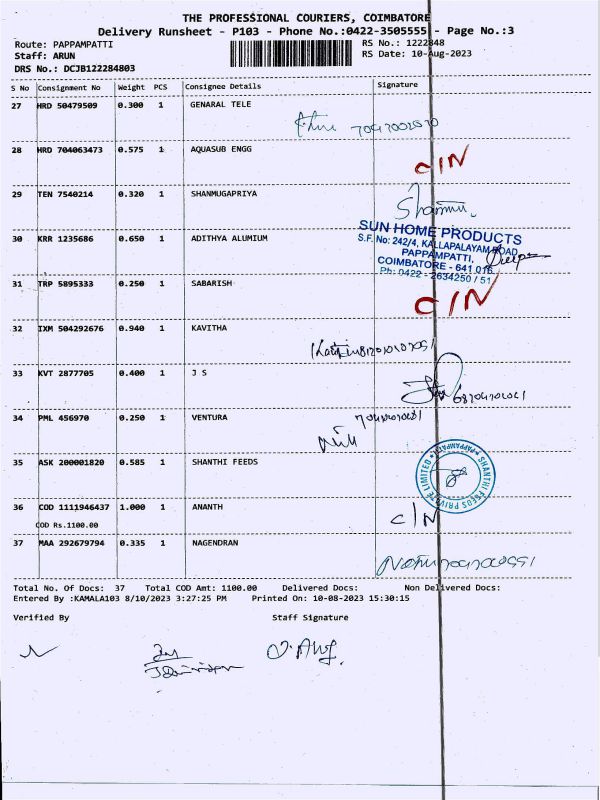 THE PROFESSIONAL COURIERS, COIMBATORE
Delivery Runsheet - P103 - Phone No.:0422-3505555 - Page No.:3
Route: PAPPAMPATTI RS No.: 1222848
Staff: ARUN RS Date: 10-Aug-2023
DRS No.: DCJB122284803
S No Consignment No Weight PCS Consignee Details Signature
27 HRD 50479509 0.300 1 GENARAL TELE
28 HRD 704063473 0.575 1 AQUASUB ENGG
C/N
29 TEN 7540214 0.320 1 SHANMUGAPRIYA
SUN HOME PRODUCTS
S.F. No: 242/4, KALLAPALAYAM ROAD
30 KRR 1235686 0.650 1 ADITHYA ALUMIUM
PAPPAMPATTI,
COIMBATORE - 641 016
Ph: 0422 - 2634250 / 51
31 TRP 5895333 0.250 1 SABARISH
C/N
32 IXM 504292676 0.940 1 KAVITHA
33 KVT 2877705 0.400 1 J S
34 PML 456970 0.250 1 VENTURA
35 ASK 200001820 0.585 1 SHANTHI FEEDS
SHANTHI FEEDS PRIVATE LIMITED * PAPPAMPATTI *
36 COD 1111946437 1.000 1 ANANTH
C/N
COD Rs.1100.00
37 MAA 292679794 0.335 1 NAGENDRAN
Total No. Of Docs: 37 Total COD Amt: 1100.00 Delivered Docs: Non Delivered Docs:
Entered By :KAMALA103 8/10/2023 3:27:25 PM Printed On: 10-08-2023 15:30:15
Verified By Staff Signature